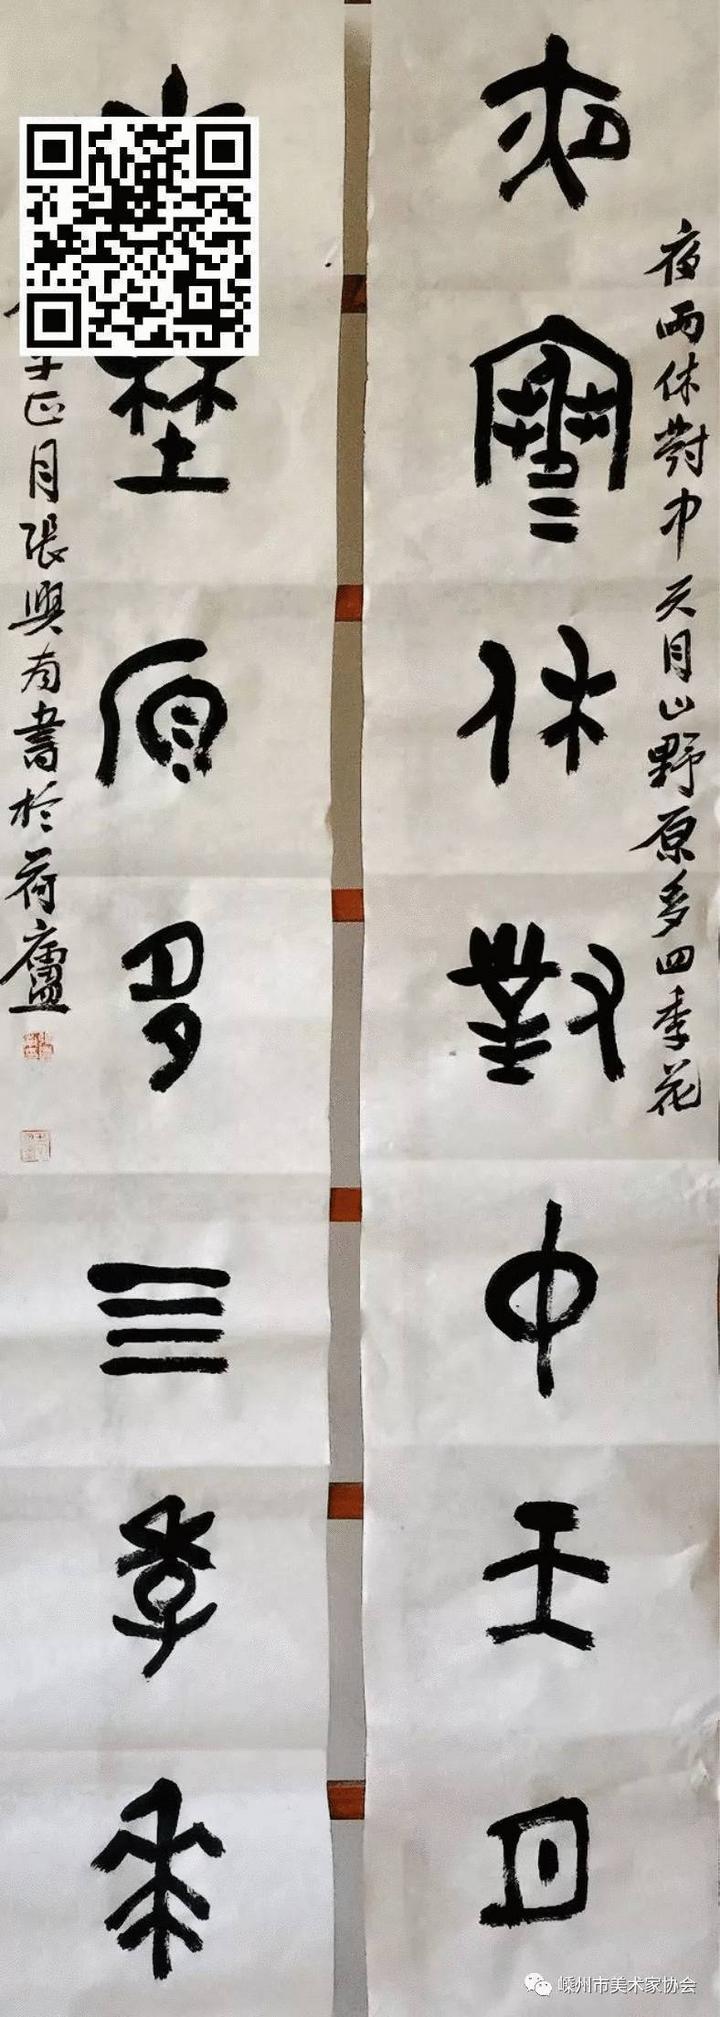 夜雨休對中天月山野原多四季花
夜休對中天日
埜原多亖季華
正月張興書於荷廬
嵊州市美术家协会